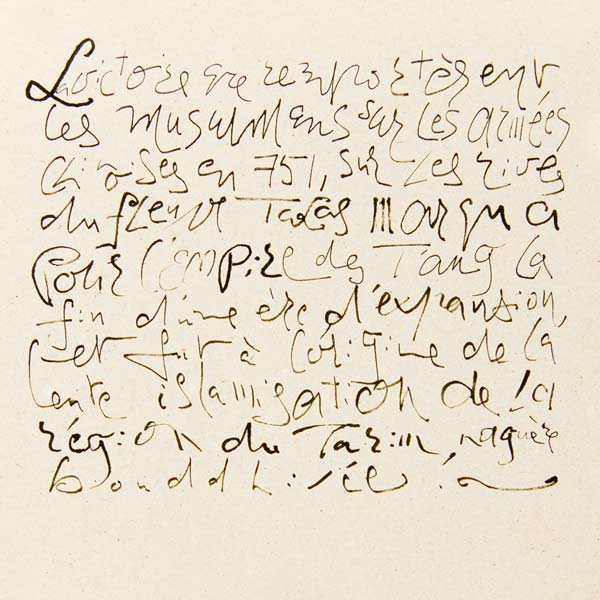 La victoire que remportèrent
les musulmans sur les armées
chinoises en 751, sur les rives
du fleuve Talas marqua
pour l'empire des Tang la
fin d'une ère d'expansion,
et fut à l'origine de la
lente islamisation de la
région du Tarim, naguère
bouddhisée.